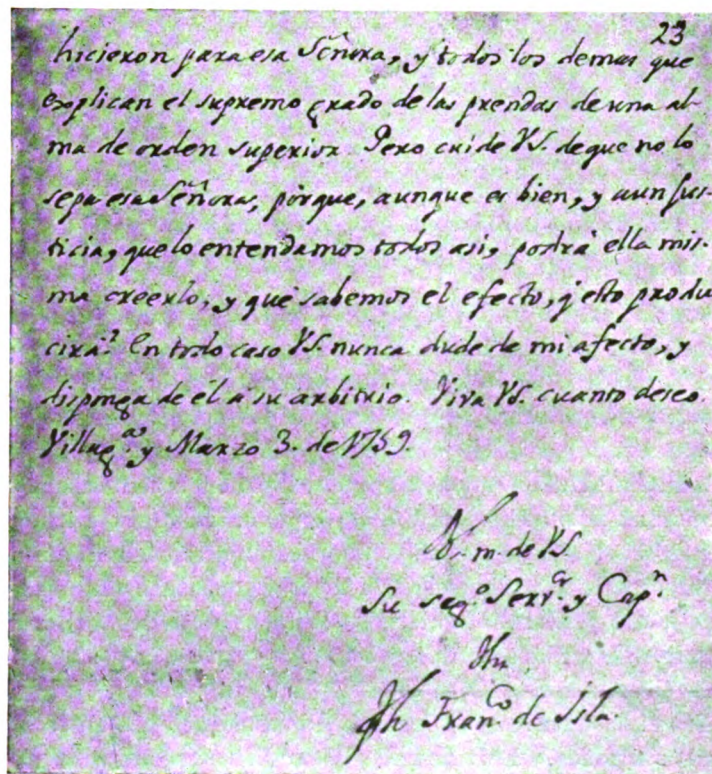 23
hicieron para esa Señora, y todos los demas que
explican el supremo grado de las prendas de una al-
ma de orden superior. Pero cuide VS. de que no lo
sepa esa Señora, porque, aunque es bien, y aun jus-
ticia, que lo entendamos todos asi, podrá ella mis-
ma creerlo, y què sabemos el efecto, q̃ esto produ
cirà? En todo caso VS. nunca dude de mi afecto, y
disponga de èl à su arbitrio. Viva VS. cuanto deseo.
Villag.ª y Marzo 3. de 1759.
B. l. m. de VS.
Su seg.º Serv.ºr y Cap.n
Jhs
Jph Fran.co de Isla.